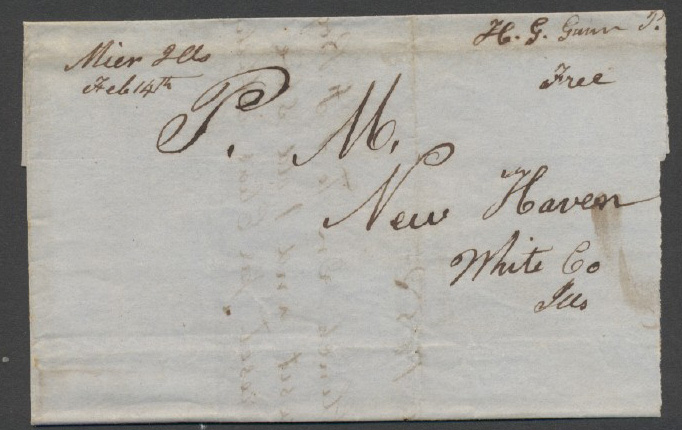 Mier Ills
Feb 14th
H. G. Gunn P.
Free
P. M.
New Haven
White Co
Ills